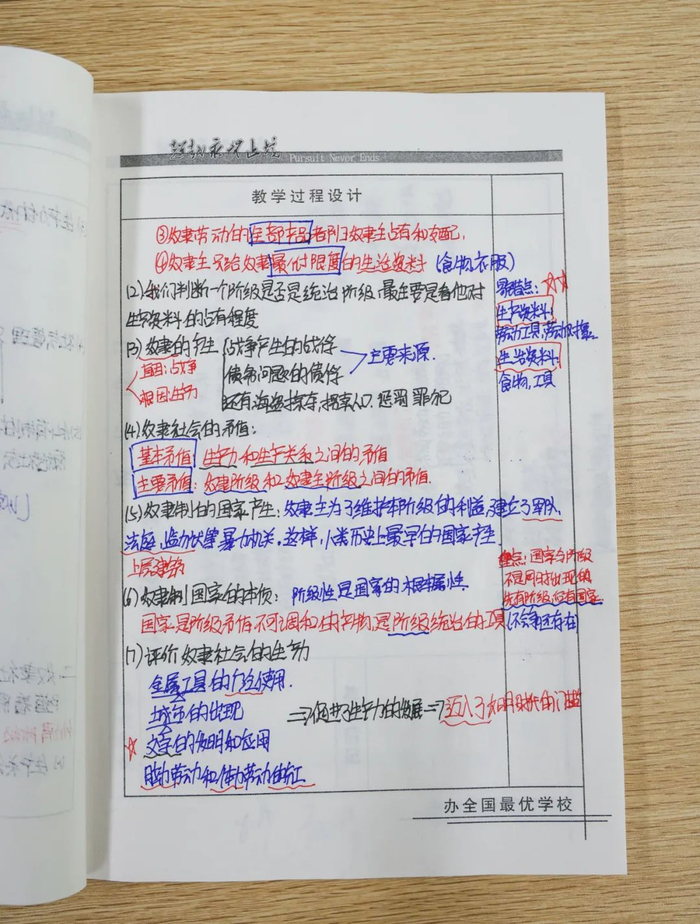 Pursuit Never Ends
教学过程设计
③奴隶劳动的全部产品都归奴隶主占有和支配.
④奴隶主只给奴隶最低限度的生活资料 (食物衣服)
(2)我们判断一个阶级是否是统治阶级,最主要是看他对
生产资料的占有程度
易错点:
生产资料:
劳动工具,劳动对象.
生活资料:
食物,工具
(3)奴隶的产生
直接:战争
根因:生产力
战争产生的战俘
债务问题的债奴
还有海盗掠夺,拐卖人口.惩罚罪犯
主要来源.
(4)奴隶社会的矛盾:
基本矛盾:生产力和生产关系之间的矛盾
主要矛盾:奴隶阶级和奴隶主阶级之间的矛盾.
(5)奴隶制的国家产生:奴隶主为了维护本阶级的利益,建立了军队,
法庭,监狱等暴力机关,这样,人类历史上最早的国家产生.
上层建筑
(6)奴隶制国家的本质:阶级性是国家的根本属性.
国家是阶级矛盾不可调和的产物,是阶级统治的工具
难点:国家与阶级
不是同时出现的
先有阶级,后有国家.
(7)评价奴隶社会的生产力
金属工具的广泛使用.
城市的出现
文字的发明和应用
脑力劳动和体力劳动的分工
=>促进了生产力的发展=>迈入了文明时代的门槛
办全国最优学校